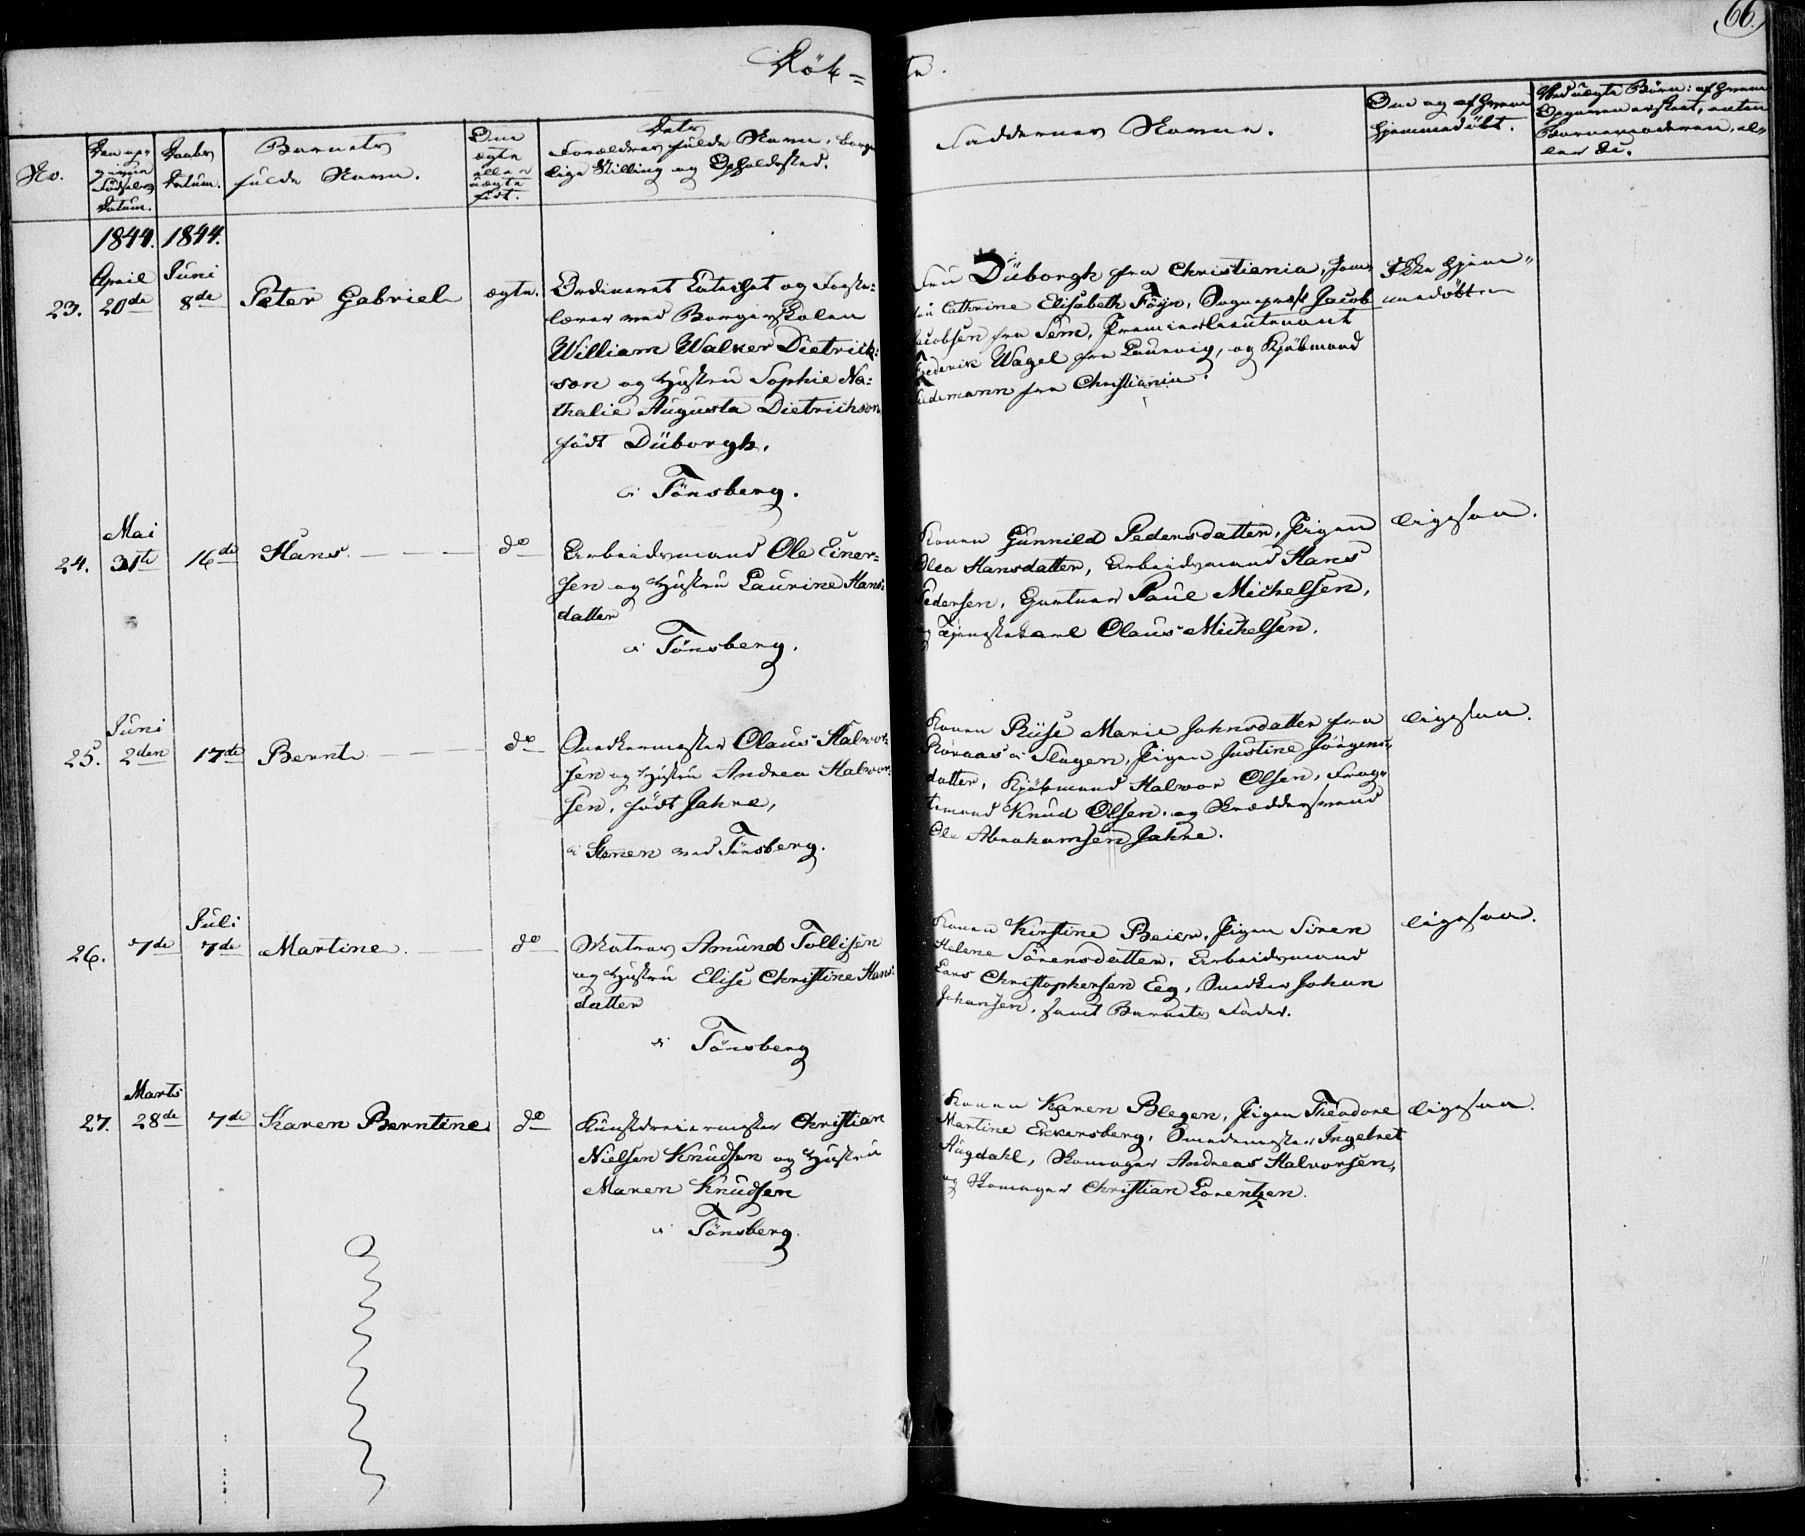 66.
Døb=
te.
No.
Den op-
givne
Fødsels
Datum.
Daabs
Datum.
Barnets
fulde Navn.
Om
ægte
eller
uægte
født.
Dets
Forældres fulde Navn, borger-
lige Stilling og Opholdssted.
Faddernes Navne.
Om og af hvem
hjemmedöbt.
Ved uægte Börn: af hvem
Opgaven er skeet, enten
Barnemoderen, el-
ler &c.
1844. 1844.
April Juni
23. 20de 8de Peter Gabriel ægte.
Ordineret Catechet og Første-
lærer ved Borgerskolen
William Walker Dietrich-
son og Hustru Sophie Na-
thalie Augusta Dietrichson
født Düborgh,
i Tönsberg.
Fru Düborgh fra Christiania, Jom-
fru Cathrine Elisabeth Föyn, Sognepræst Jacob
Jacobsen fra Sem, Premierlieutenant
Frederik Wagel fra Laurvig, og Kjöbmand
fra Christiania.
Ikke hjem-
medöbt
Mai
24. 31te 16de Hans. do
Arbeidsmand Ole Einer-
sen og Hustru Laurine Hans-
datter
i Tönsberg.
Konen Gunnild Pedersdatter, Pigen
Olea Hansdatter, Arbeidsmand Hans
Pedersen, Gartner Paul Michelsen,
og Tjenestekarl Olaus Michelsen.
ligesaa.
Juni
25. 2den 17de Bernt do
Snedkermester Olaus Halvor-
sen og Hustru Andrea Halvor-
sen, født Jahre,
i Stenen ved Tönsberg.
Konen Marie Johnsdatter fra
i Slagen, Pigen Justine Jörgens-
datter, Kjöbmand Halvor Olsen, Frag-
temand Knud Olsen, og Skræddersvend
Ole Abrahamsen Jahre.
ligesaa.
Juli
26. 7de 7de Martine. do
Matros Amund Tollisen
og Hustru Elise Christine Hans-
datter
i Tönsberg
Konen Kirstine Beier, Pigen Siren
Helene Sörensdatter, Arbeidsmand
Lars Christophersen Eeg, Snedker Johan
Johansen, samt Barnets Fader.
ligesaa.
Marts
27. 28de 7de Karen Berntine do
Kunstdreiermester Christian
Nielsen Knudsen og Hustru
Maren Knudsen
i Tönsberg.
Konen Karen Blegen, Pigen Theodore
Martine Eckersberg, Smedemester Ingebret
Augdahl, Skomager Andreas Halvorsen,
og Skomager Christian Lorentzen.
ligesaa.